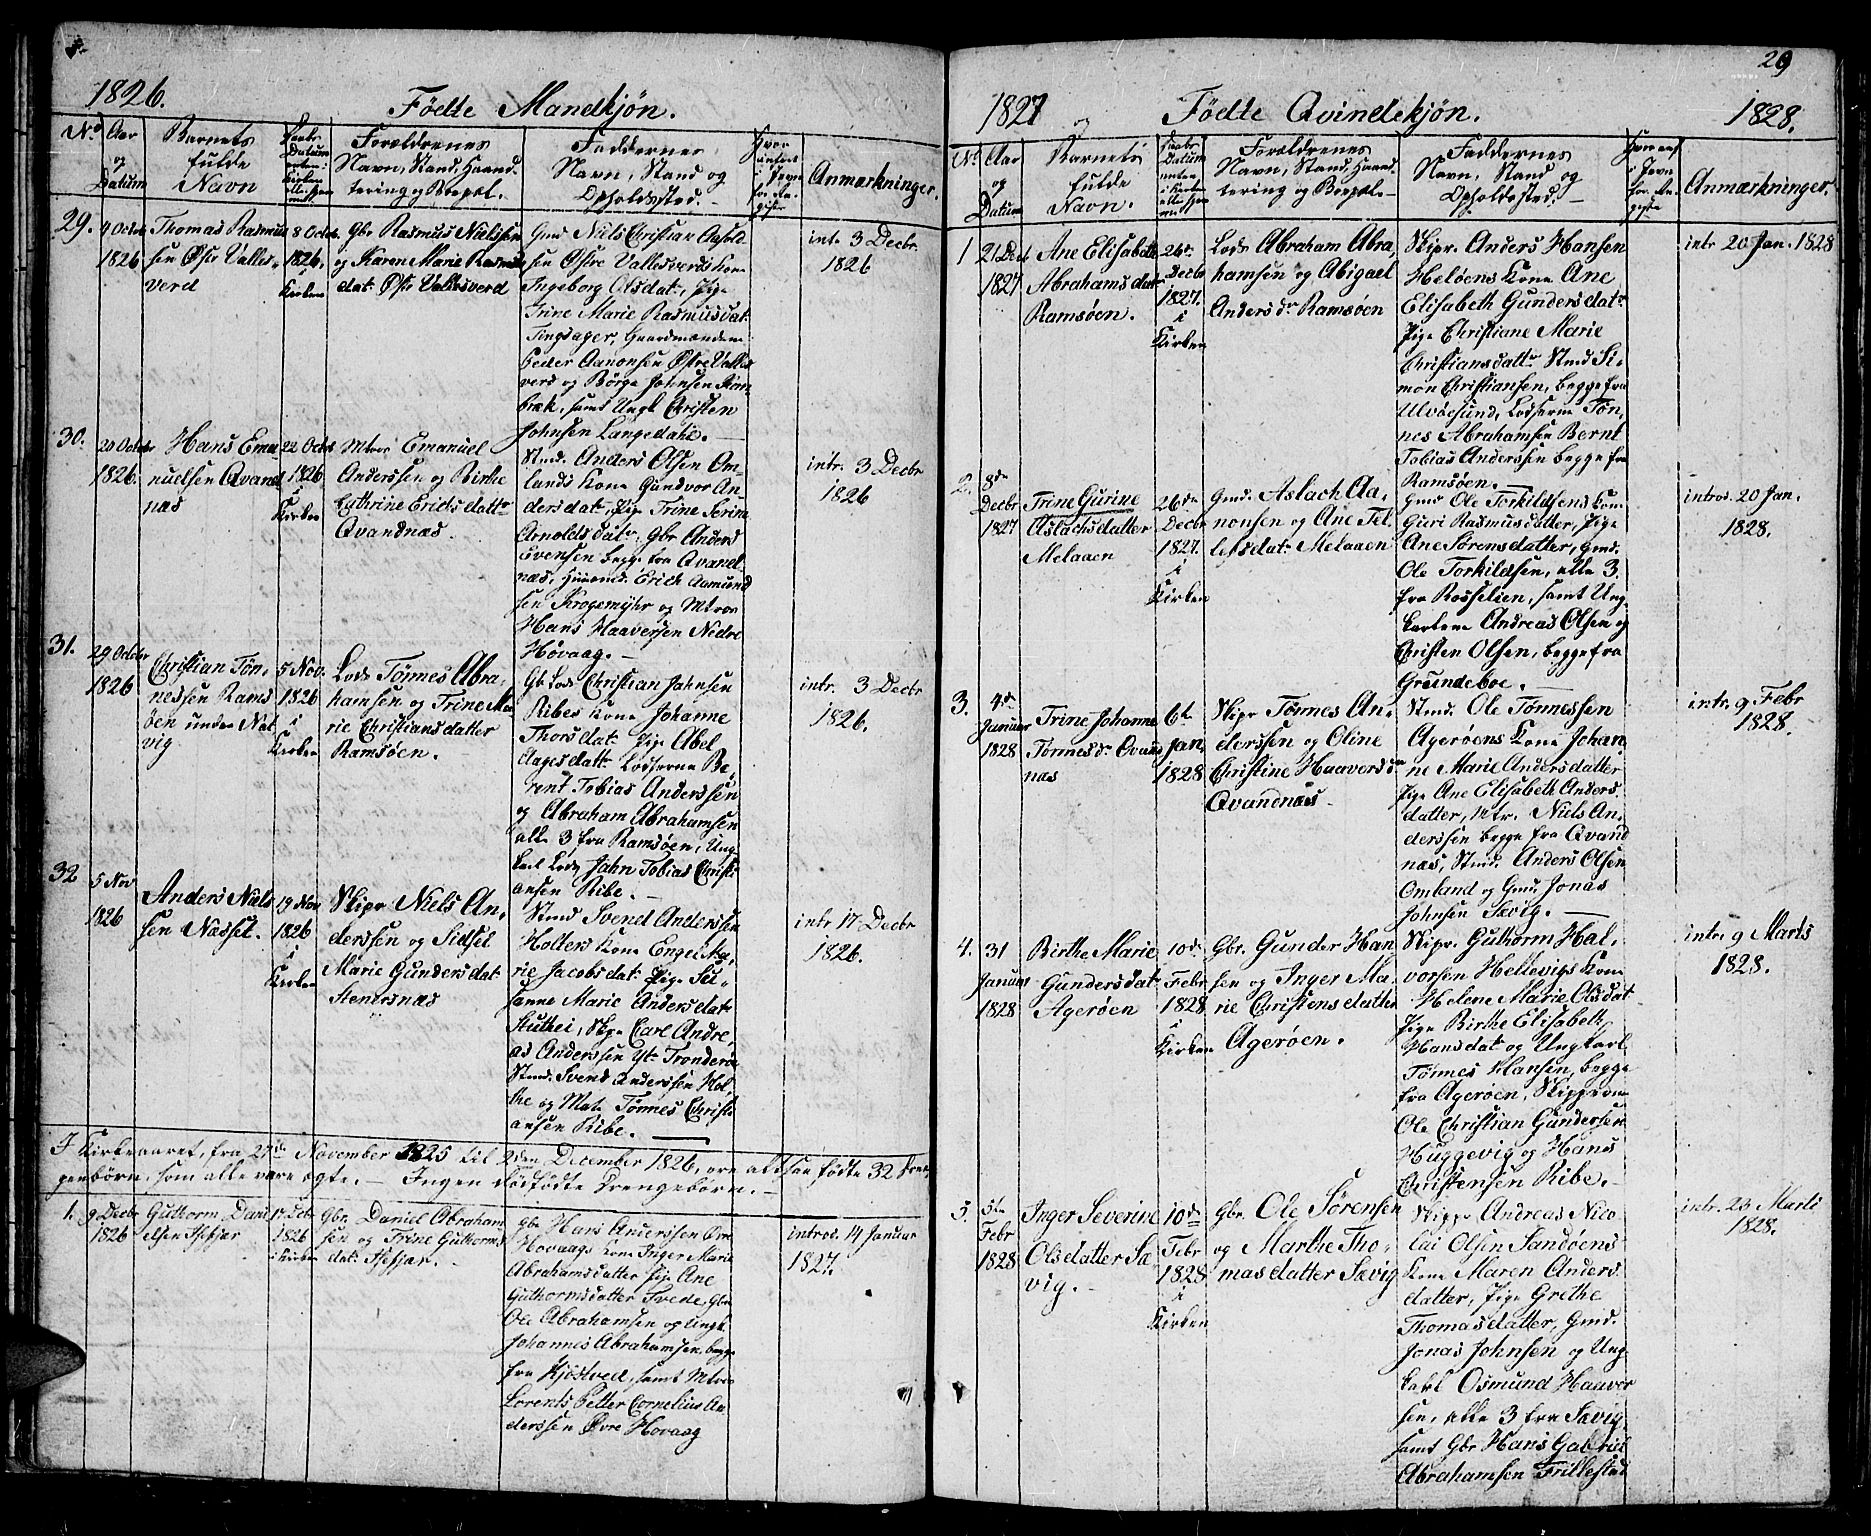 1826.
Fødte Mandkjøn.
No Aar og Datum
Barnets fulde Navn
Daabs Datum enten i Kirken eller hjemme
Forældrenes Navn, Stand, Haandtering og Bopæl.
Faddernes Navn, Stand og Opholdssted.
Anmærkninger.
29.
4 Octbr
1826
Thomas Rasmus
sen Østr Valles-
verd
8 Octbr
1826.
i
Kirken
Gbr Rasmus Nielssen
og Karen Marie Rasmus
dat. Østr Vallesverd
Gmd Niels Christian
sen Østre Vallesverds Kone
Ingeborg Olsdat., Pige
Trine Marie Rasmusdat.
Tingsager, Gaardmændene
Peder Aanonsen Østre Valles
verd og Børge Johnsen Kom-
bræk, samt Ungk Christen
Johnsen Langedahl.
intr. 3 Decbr.
1826
30.
20 Octbr
1826.
Hans Ema
nuelsen Qvand
næs
22 Octbr
1826
i
Kirken
Mtros Emanuel
Anderssen og Birthe
Cathrine Erichsdattr
Qvandnæs.
Stmd. Anders Olsen Om-
lands Kone Gundvor An
dersdat., Pige Trine Serine
Arnoldsdatr, Gbr Anders
Evensen begge fra Qvand
næs, Huusmd. Erich Aamund
sen Krogemyhr og Mtros
Hans Haaversen Nedre
Høvaag.
intr. 3 Decbr
1826
31.
29 Octbr
1826
Christian Tøn-
nessen Rams
øen under Nat
vig
5 Nov.
1826
i
Kirken
Lods Tønnes Abra-
hamsen og Trine Ma
rie Christiansdatter
Ramsøen.
Gb Lods Christian Johnsen
Ribes Kone Johanne
Thorsdat. Pige Abel
Aagesdattr Lodserne Be-
rent Tobias Anderssen
og Abraham Abrahamsen
alle 3 fra Ramsøen, Ung
karl Lods John Tobias Christi
ansen Ribe.
intr. 3 Decbr
1826.
32
5 Nov
1826
Anders Niels
sen Næsset.
19 Nov
1826
i
Kirken
Skipr Niels An-
derssen og Sidsel
Marie Gundersdat
Steinsnæs
Stmd Svend Anderssen
Holters Kone Engel Ma-
rie Jacobsdat. Pige Su-
sanne Marie Andersdat.
Stuthei, Skipr Carl Andre-
as Anderssen Yt. Tronderøe
Stmd. Svend Anderssen Hol-
the og Mat. Tønnes Christi
ansen Ribe.
intr 17 Decbr
1826.
I Kirkeaaret, fra 27de November 1825 til 2den December 1826, ere altsaa fødte 32 dren-
gebørn, som alle vare ægte. — Ingen dødfødte Drengebørn. —
1.
9 Decbr
1826
Guthorm Dani
elsen Isefjær
17 Decbr
1826
i Kirken
Gbr. Daniel Abraham
sen og Trine Guthorms
dat. Isefjær.
Gbr Hans Anderssen Øvre
Hovaags Kone Inger Marie
Abrahamsdatter Pige Ane
Guthormsdatter Tvede, Gbr
Ole Abrahamsen og Ungk
Johannes Abrahamsen, begge
fra Kjøstved, samt Mtros
Lorents Petter Cornelius An
derssen Øvre Hovaag
introd. 14 Januar
1827.
29
1827 og
Fødte Qvindekjøn.
1828.
No Aar og Datum
Barnets fulde Navn.
Daabs Datum enten i Kirken eller hjemme
Forældrenes Navn, Stand, Haandtering og Bopæl.
Faddernes Navn, Stand og Opholdssted.
Anmærkninger.
1
21 Decbr
1827
Ane Elisabeth
Abrahamsdatr
Ramsøen.
26de
Decbr
1827.
i
Kirken
Lods Abraham Abra-
hamsen og Abigael
Andersdr Ramsøen
Skipr. Anders Hansen
Heløens Kone Ane
Elisabeth Gundersdatr
Pige Christiane Marie
Christiansdattr Stmd Si-
mon Christiansen, begge fra
Ulvøesund, Lodserne Tøn-
nes Abrahamsen Bernt
Tobias Anderssen begge fra
Ramsøen.
intr 20 Jan. 1828
2.
8de
Decbr
1827
Trine Gurine
Aslachsdatter
Melaaen
26de
Decbr
1827.
i
Kirken
Gmd. Aslach Aa-
nonsen og Ane Tel-
lefsdat. Melaaen
Gmd Ole Torkildsens Kone
Guri Rasmusdatter, Pige
Ane Sørensdatter, Gmd.
Ole Torkildsen, alle 3
fra Rosselien, samt Ung
karlene Andreas Olsen og
Christen Olsen, begge fra
Grundeboe.
introd. 20 Jan.
1828.
3.
4de
Januar
1828
Trine Johanne
Tønnesdr Qvand
næs
6te
Jan.
1828
Skipr Tønnes An-
derssen og Oline
Christine Haaversdr
Qvandnæs
Stmd. Ole Tønnessen
Agerøens Kone Johan
ne Marie Andersdatter
Pige Ane Elisabeth Anders
datter, Mtr. Niels An-
derssen begge fra Qvand
næs, Stmd. Anders Olsen
Omland og Gmd. Jonas
Johnsen Sævig.
intr. 9 Febr
1828.
4.
31
Januar
1828
Birthe Marie
Gundersdat
Agerøen
10de
Febr
1828
i
Kirken
Gbr. Gunder Han
sen og Inger Ma-
rie Christensdatter
Agerøen.
Skipr. Guthorm Hal-
vorsen Hellevigs Kone
Helene Marie Olsdat
Pige Birthe Elisabeth
Hansdat. og Ungkarl
Tønnes Hansen, begge
fra Agerøen, Skipperne
Ole Christian Gundersen
Huggevig og Hans
Christensen Ribe.
intr. 9 Marts
1828.
5.
5te
Febr
1828
Inger Severine
Olsdatter Sæ-
vig.
10de
Febr
1828
i
Kirken
Gbr. Ole Sørensen
og Marthe Tho-
masdatter Sævig
Skippr Andreas Nico
lai Olsen Sandøens
Kone Maren Anders
datter, Pige Grethe
Thomasdatter, Gmd.
Jonas Johnsen og Ung
karl Osmund Haaver
sen, alle 3 fra Sævig
samt Gbr Hans Gabriel
Abrahamsen Trillestad
intr. 23 Marti
1828.